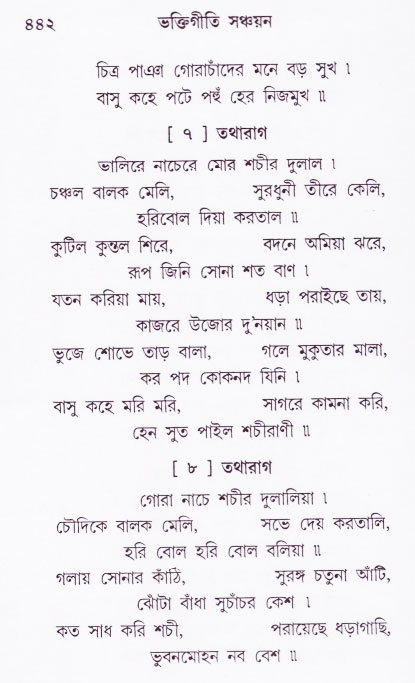 ৪৪২ ভক্তিগীতি সঞ্চয়ন
চিত্র পাঞা গোরাচাঁদের মনে বড় সুখ ।
বাসু কহে পটে পহুঁ হের নিজমুখ ॥
[ ৭ ] তথারাগ
ভালিরে নাচেরে মোর শচীর দুলাল ।
চঞ্চল বালক মেলি, সুরধুনী তীরে কেলি,
হরিবোল দিয়া করতাল ॥
কুটিল কুন্তল শিরে, বদনে অমিয়া ঝরে,
রূপ জিনি সোনা শত বাণ ।
যতন করিয়া মায়, ধড়া পরাইছে তায়,
কাজরে উজোর দু'নয়ান ॥
ভুজে শোভে তাড় বালা, গলে মুকুতার মালা,
কর পদ কোকনদ যিনি ।
বাসু কহে মরি মরি, সাগরে কামনা করি,
হেন সুত পাইল শচীরাণী ॥
[ ৮ ] তথারাগ
গোরা নাচে শচীর দুলালিয়া ।
চৌদিকে বালক মেলি, সভে দেয় করতালি,
হরি বোল হরি বোল বলিয়া ॥
গলায় সোনার কাঁঠি, সুরঙ্গ চতুনা আঁটি,
ঝোঁটা বাঁধা সুচাঁচর কেশ ।
কত সাধ করি শচী, পরায়েছে ধড়াগাছি,
ভুবনমোহন নব বেশ ॥